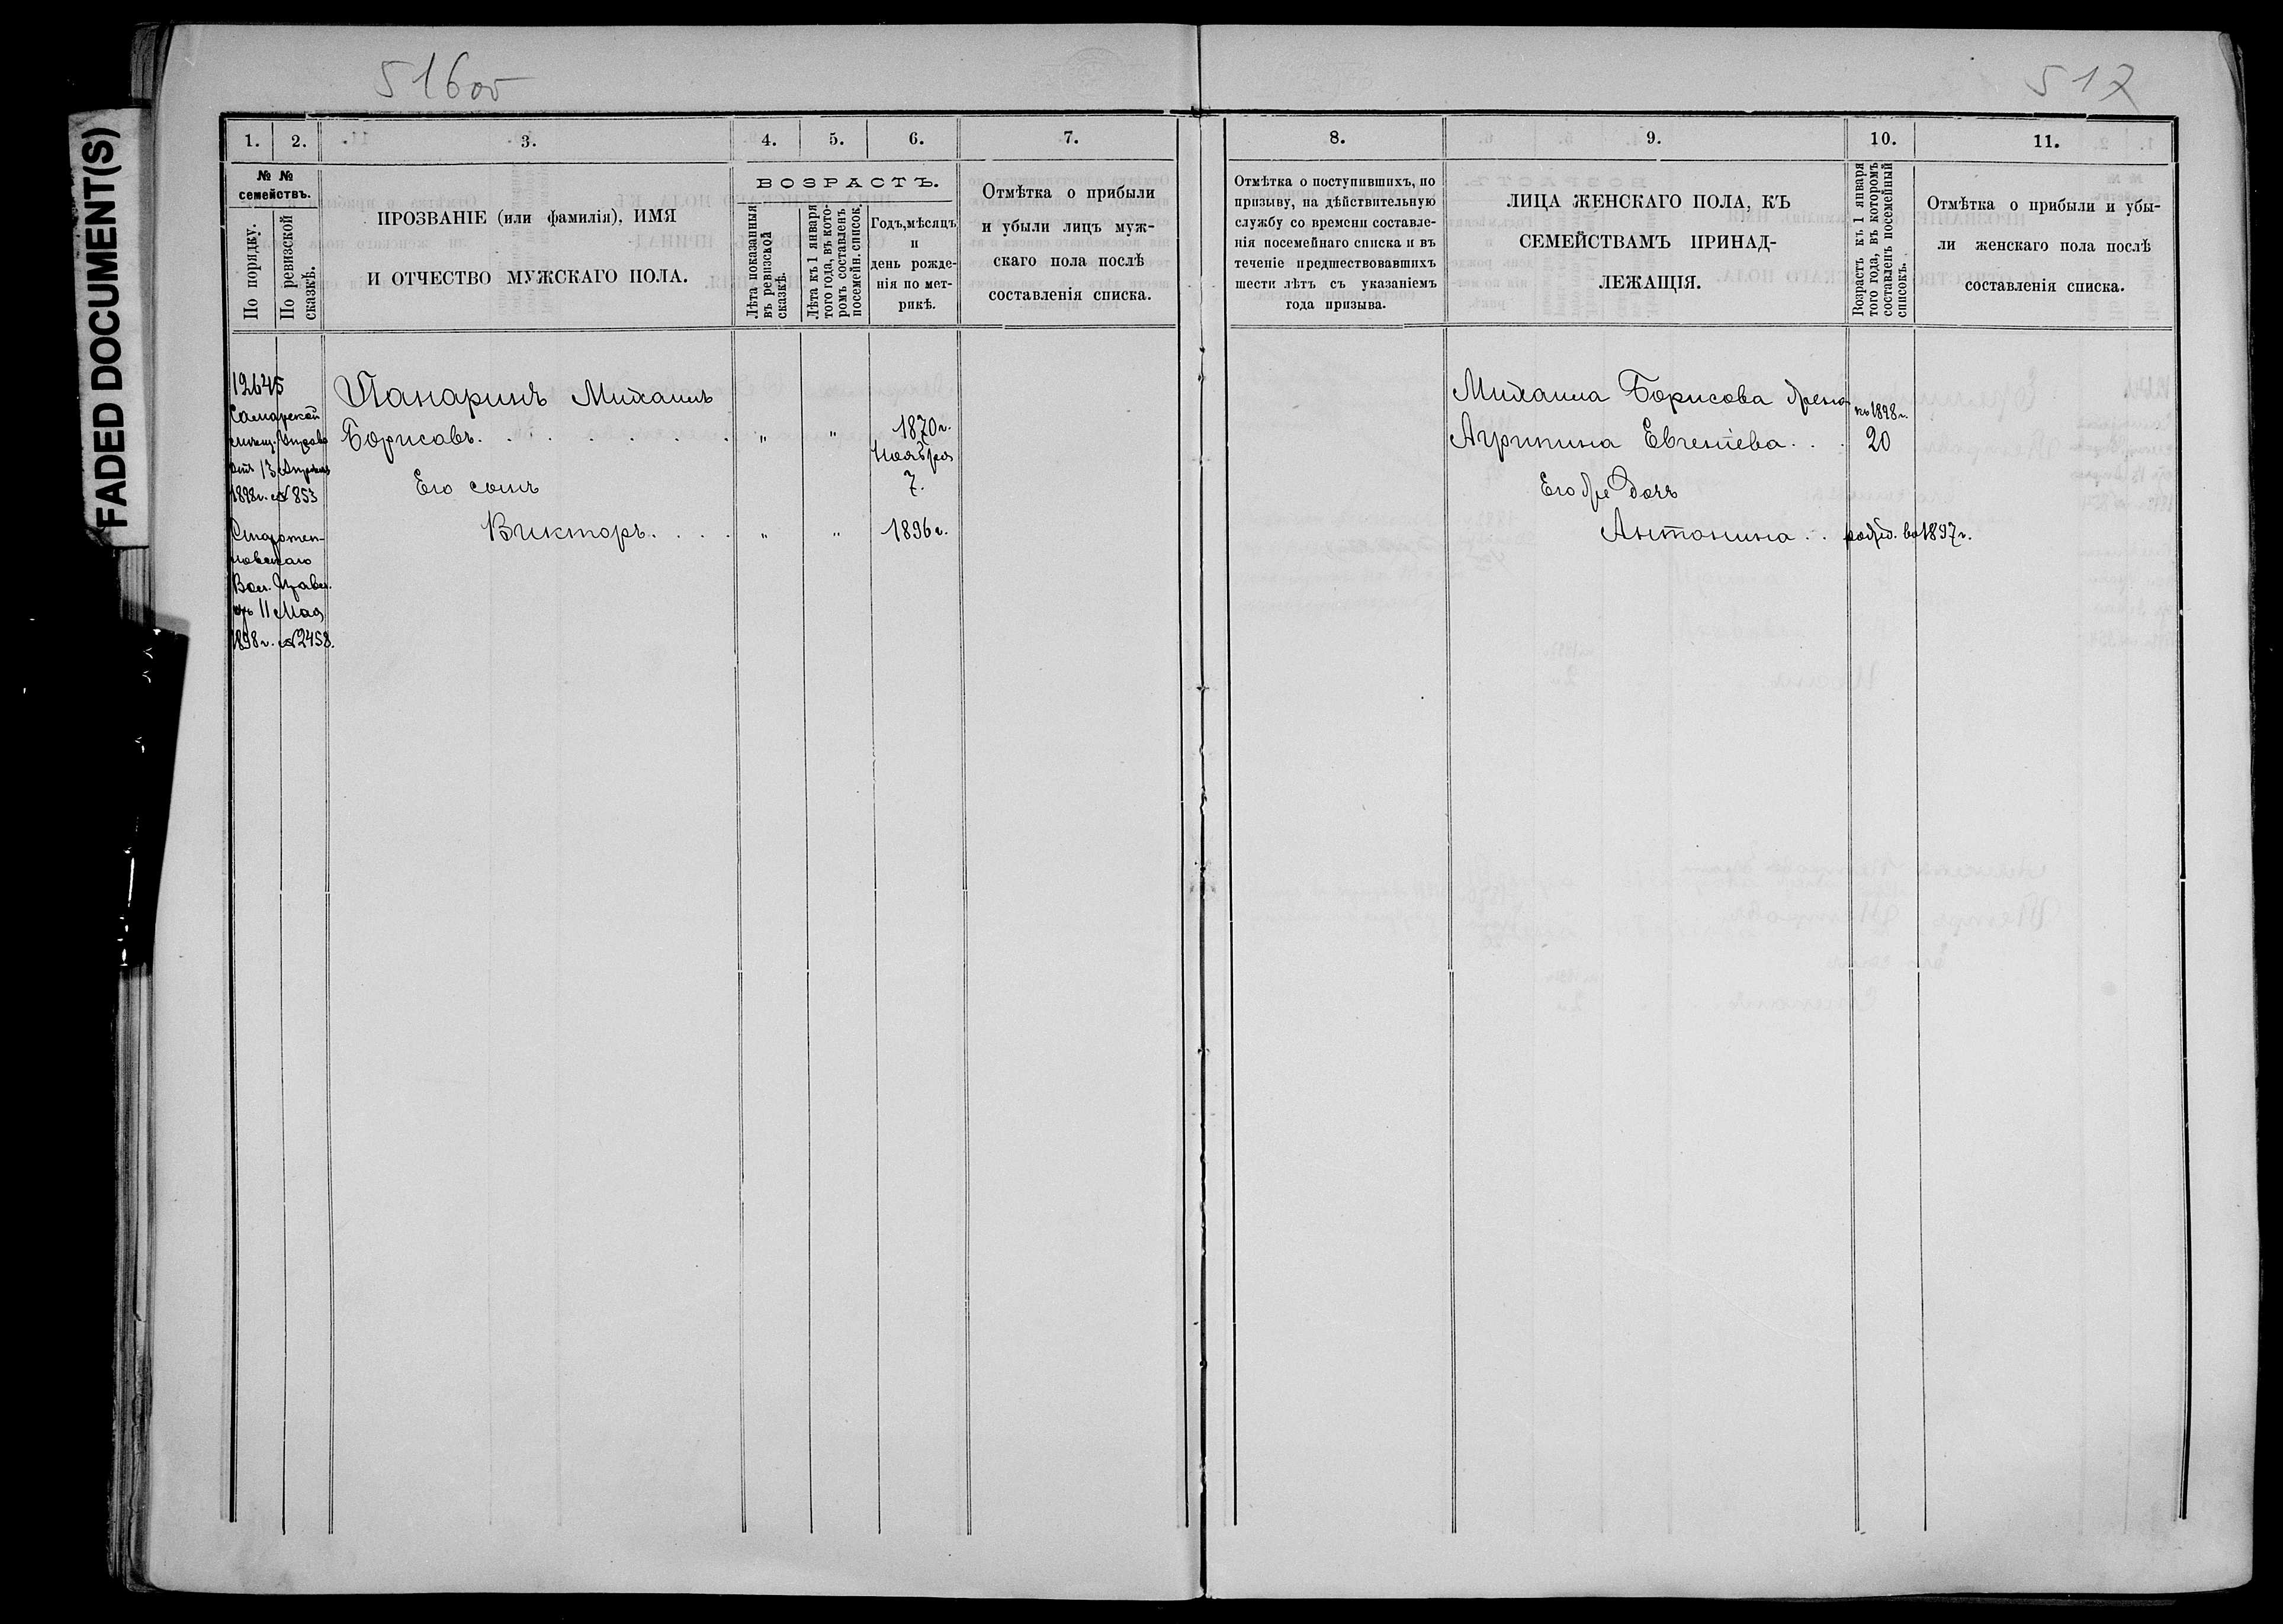 516об
517
FADED DOCUMENT(S)
1. 2. 3. 4. 5. 6. 7.
№ № семействъ.
По порядку.
По ревизской сказкѣ.
ПРОЗВАНІЕ (или фамилія), ИМЯ
И ОТЧЕСТВО МУЖСКАГО ПОЛА.
ВОЗРАСТЪ.
Лѣта показанныя
въ ревизской
сказкѣ.
Лѣта къ 1 января
того года, въ кото-
ромъ составленъ
посемейн. список.
Годъ, мѣсяцъ
и
день рожде-
нія по мет-
рикѣ.
Отмѣтка о прибыли
и убыли лицъ муж-
скаго пола послѣ
составленія списка.
12645
Самарской
мѣщ. Управы
отъ 13 Апрѣля
1898 г. № 853
Волос. Правл.
отъ 11 Мая
1898 г. № 2458.
Панаринъ Михаилъ
Борисовъ. . . . . . . „ „ 1870 г.
Ноября
7.
Его сынъ
Викторъ. . . . „ „ 1896 г.
8. 9. 10. 11.
Отмѣтка о поступившихъ, по
призыву, на дѣйствительную
службу со времени составле-
нія посемейнаго списка и въ
теченіе предшествовавшихъ
шести лѣтъ съ указаніемъ
года призыва.
ЛИЦА ЖЕНСКАГО ПОЛА, КЪ
СЕМЕЙСТВАМЪ ПРИНАД-
ЛЕЖАЩІЯ.
Возрастъ къ 1 января
того года, въ которомъ
составленъ посемейный
списокъ.
Отмѣтка о прибыли и убы-
ли женскаго пола послѣ
составленія списка.
Михаила Борисова жена къ 1898 г.
Агрипина Евгеніева. . . 20
Его же дочь
Антонина . . рожд. въ 1897 г.